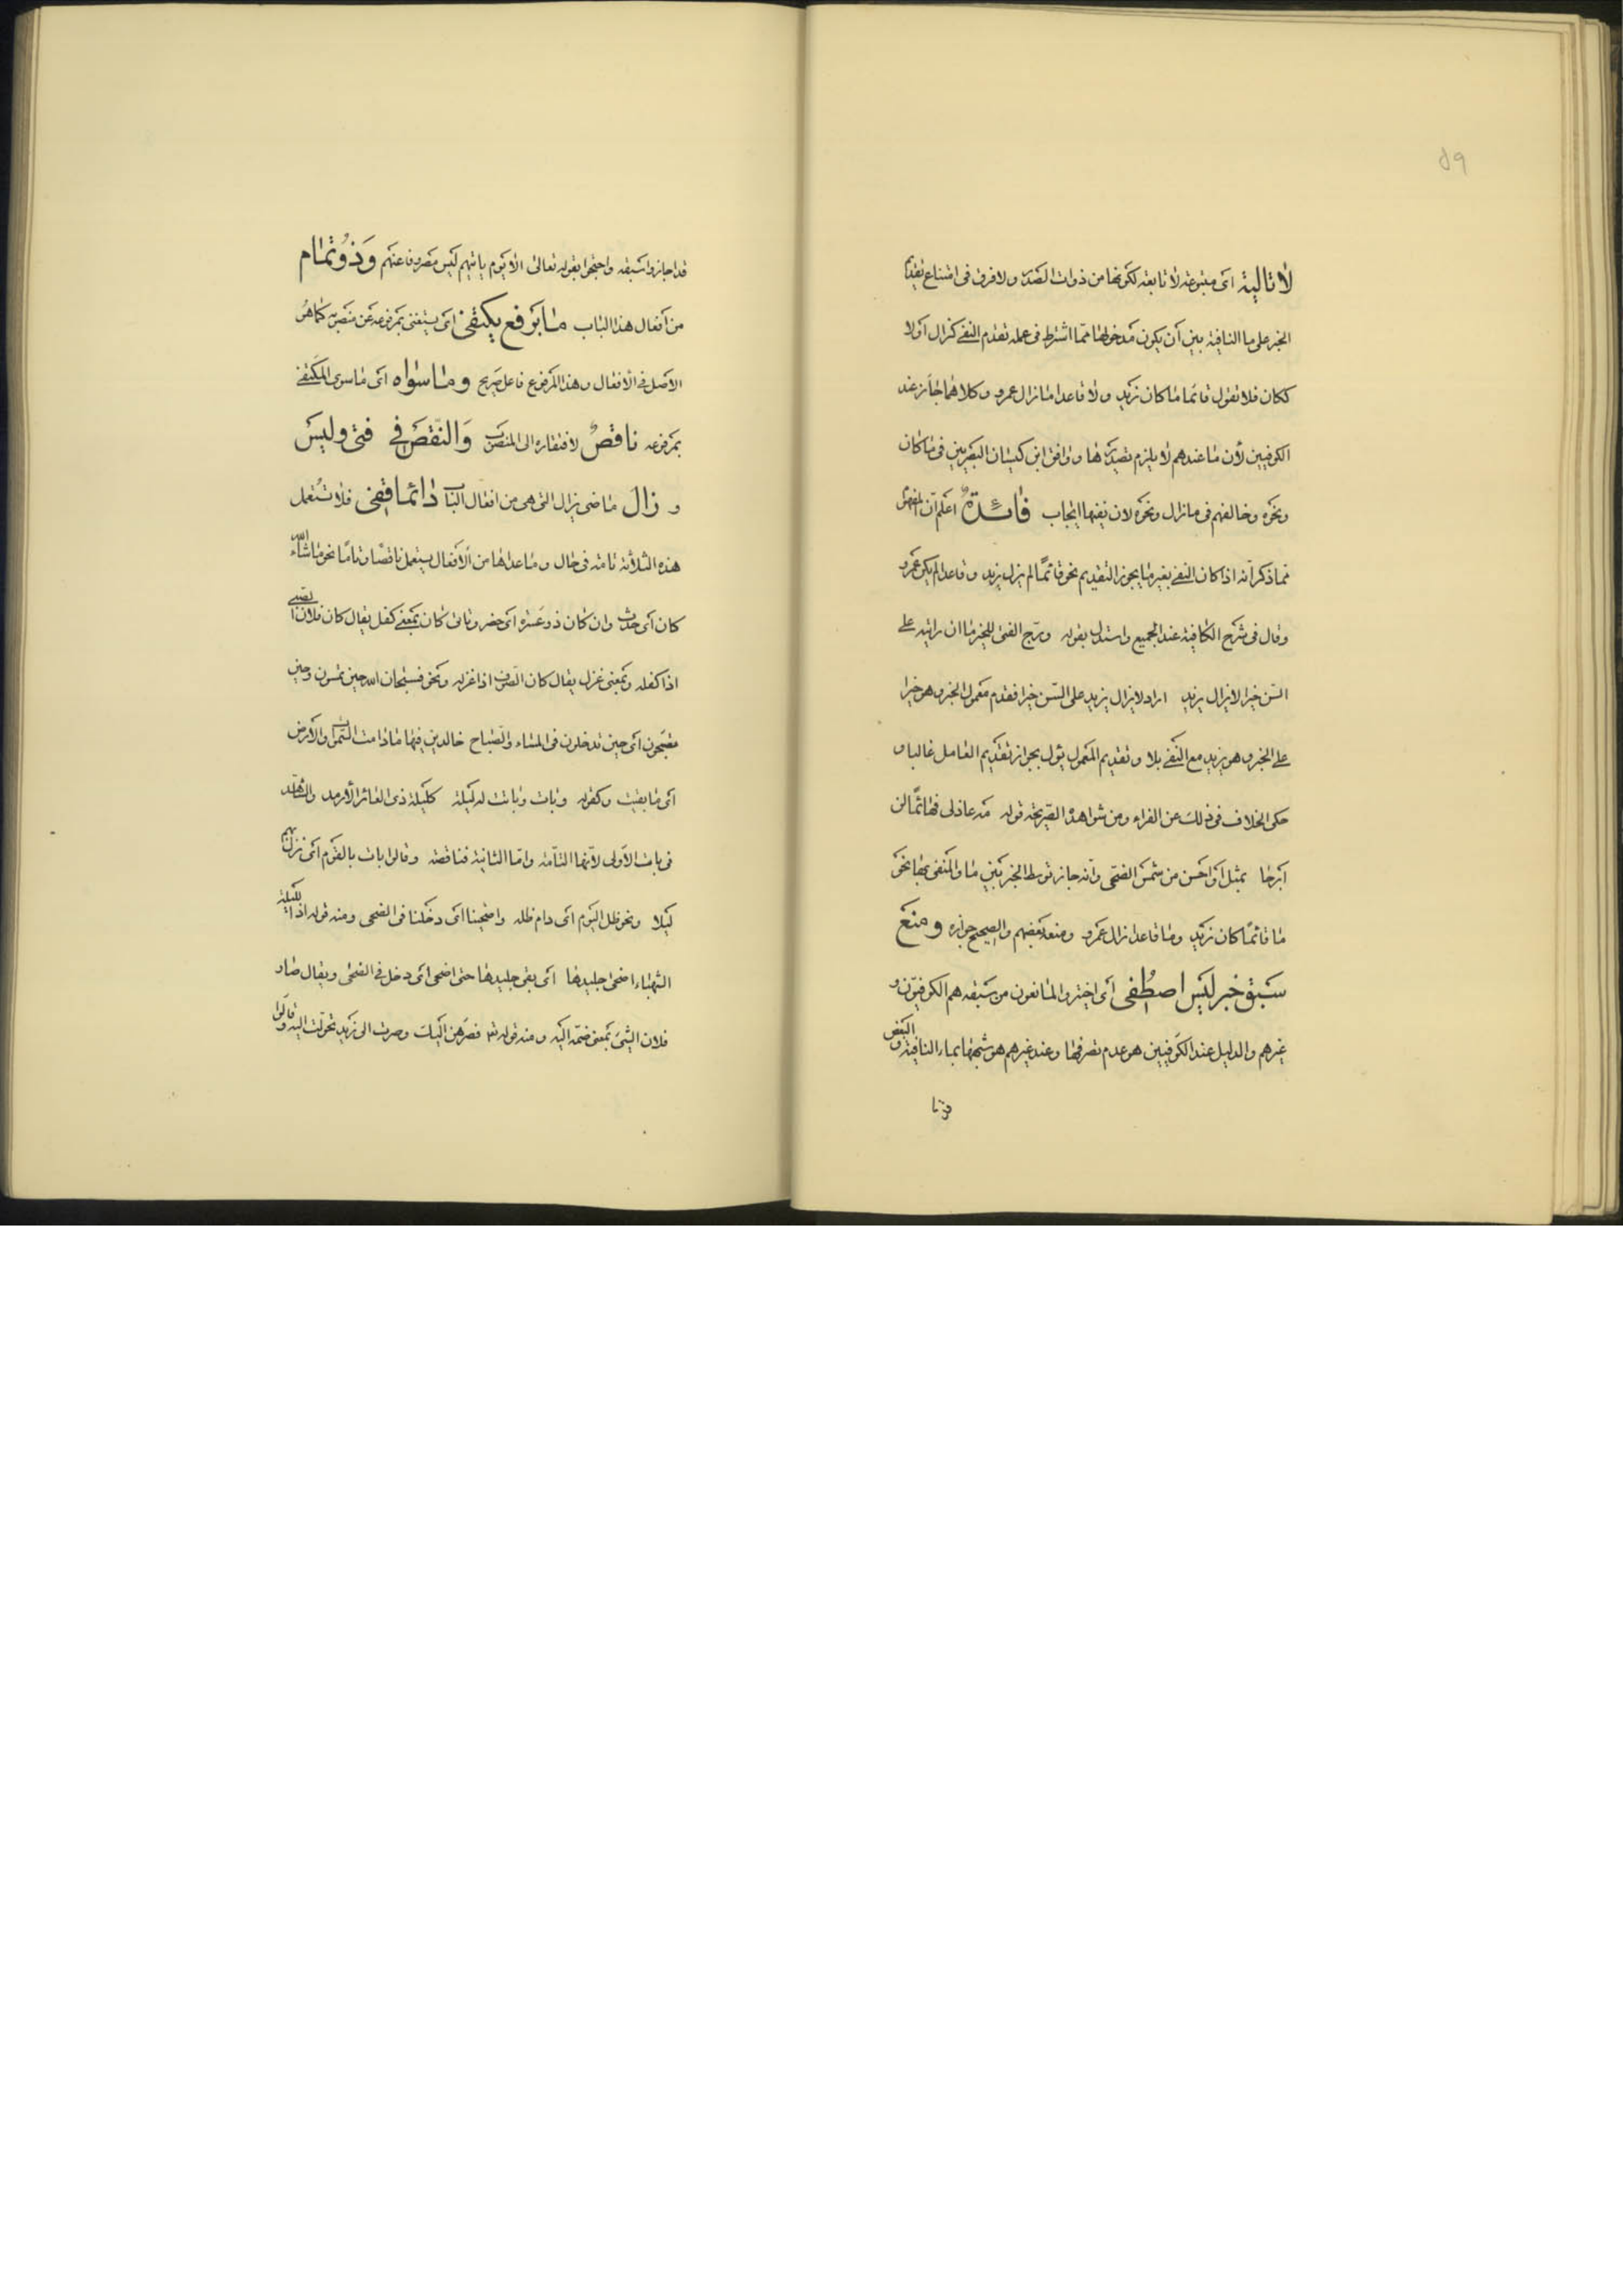 ٥٩
لا تالية اى متبوعة لا تابعة لكونها من ذوات الصدر ولا فرق فى امتناع تقديم
الخبر على ما النافية بين أن يكون مدخولها مما اشترط فى عمله تقدم النفى كزال اولا
ككان فلا تقول قائما ما كان زيد ولا قاعدا ما زال عمرو وكلاهما جائز عند
الكوفيين لأن ما عندهم لا يلزم تصديرها ووافق ابن كيسان البصريين فى ما كان
ونحوه وخالفهم فى ما زال ونحوه لان نفيها ايجاب فائدة اعلم ان المفهوم
مما ذكر أنه اذا كان النفى بغير ما يجوز التقديم نحو قائمًا لم يزل زيد وقاعدا لم يكن عمرو
وقال فى شرح الكافية عند الجميع واستدل بقوله ورج الفتى للخير ما ان رايته على
السن خيرا لا يزال يزيد اراد لا يزال يزيد على السن خيرا فقدم معمول الخبر وهو خيرا
على الخبر وهو يزيد مع النفى بلا وتقديم المعمول يؤل بجواز تقديم العامل غالبا و
حكى الخلاف فى ذلك عن الفراء ومن شواهده الصريحة قوله مه عاذلى فهائمًا لن
ابرحا بمثل او احسن من شمس الضحى وانه جاز توسط الخبر بين ما والمنفى بها نحو
ما قائمًا كان زيد وما قاعدا زال عمرو ومنعه بعضهم والصحيح جوازه ومنع
سبق خبر ليس اصطُفى اى اختير والمانعون من سبقه هم الكوفيون و
غيرهم والدليل عند الكوفيين هو عدم تصرفها وعند غيرهم هو شبهها بما النافية والبعض
قد اجازوا سبقه واحتجوا بقوله تعالى الا يوم ياتيهم ليس مصروفا عنهم وَذُو تمام
من افعال هذا الباب ما برفع يكتفى اى يستغنى بمرفوعه عن منصوبه كما هو
الاصل فى الأفعال وهذا المرفوع فاعل صريح وما سواه اى ما سوى المكتفى
بمرفوعه ناقصٌ لافتقاره الى المنصوب وَالنّقص فى فتئ وليس
و زال ماضى يزال التى هى من افعال الباب دائما قفى فلا تُستعمل
هذه الثلاثة تامة فى حال وما عداها من الأفعال يستعمل ناقصًا وتامًا نحو ما شاء الله
كان اى حدث وان كان ذو عسرة اى حضر وتاتى كان بمعنى كفل يقال كان فلان الصبى
اذا كفله وبمعنى غزل يقال كان الصوف اذا غزله ونحو فسبحان الله حين تمسون وحين
تصبحون اى حين تدخلون فى المساء والصباح خالدين فيها ما دامت السموات والأرض
اى ما بقيت وكقوله وبات وباتت له ليلة كليلة ذى العائر الأرمد والشاهد
فى بات الأولى لأنها التامة واما الثانية فناقصة وقالوا بات بالقوم اى نزل بهم
ليلا ونحو ظل اليوم اى دام ظله واضحينا اى دخلنا فى الضحى ومنه قوله اذا الليلة
الشهباء اضحى جليدها اى بقى جليدها حتى اضحى اى دخل فى الضحى ويقال صار
فلان الشئ بمعنى ضمّه اليه ومنه قوله تع فصرهن اليك وصرت الى زيد تحولت اليه وقالوا